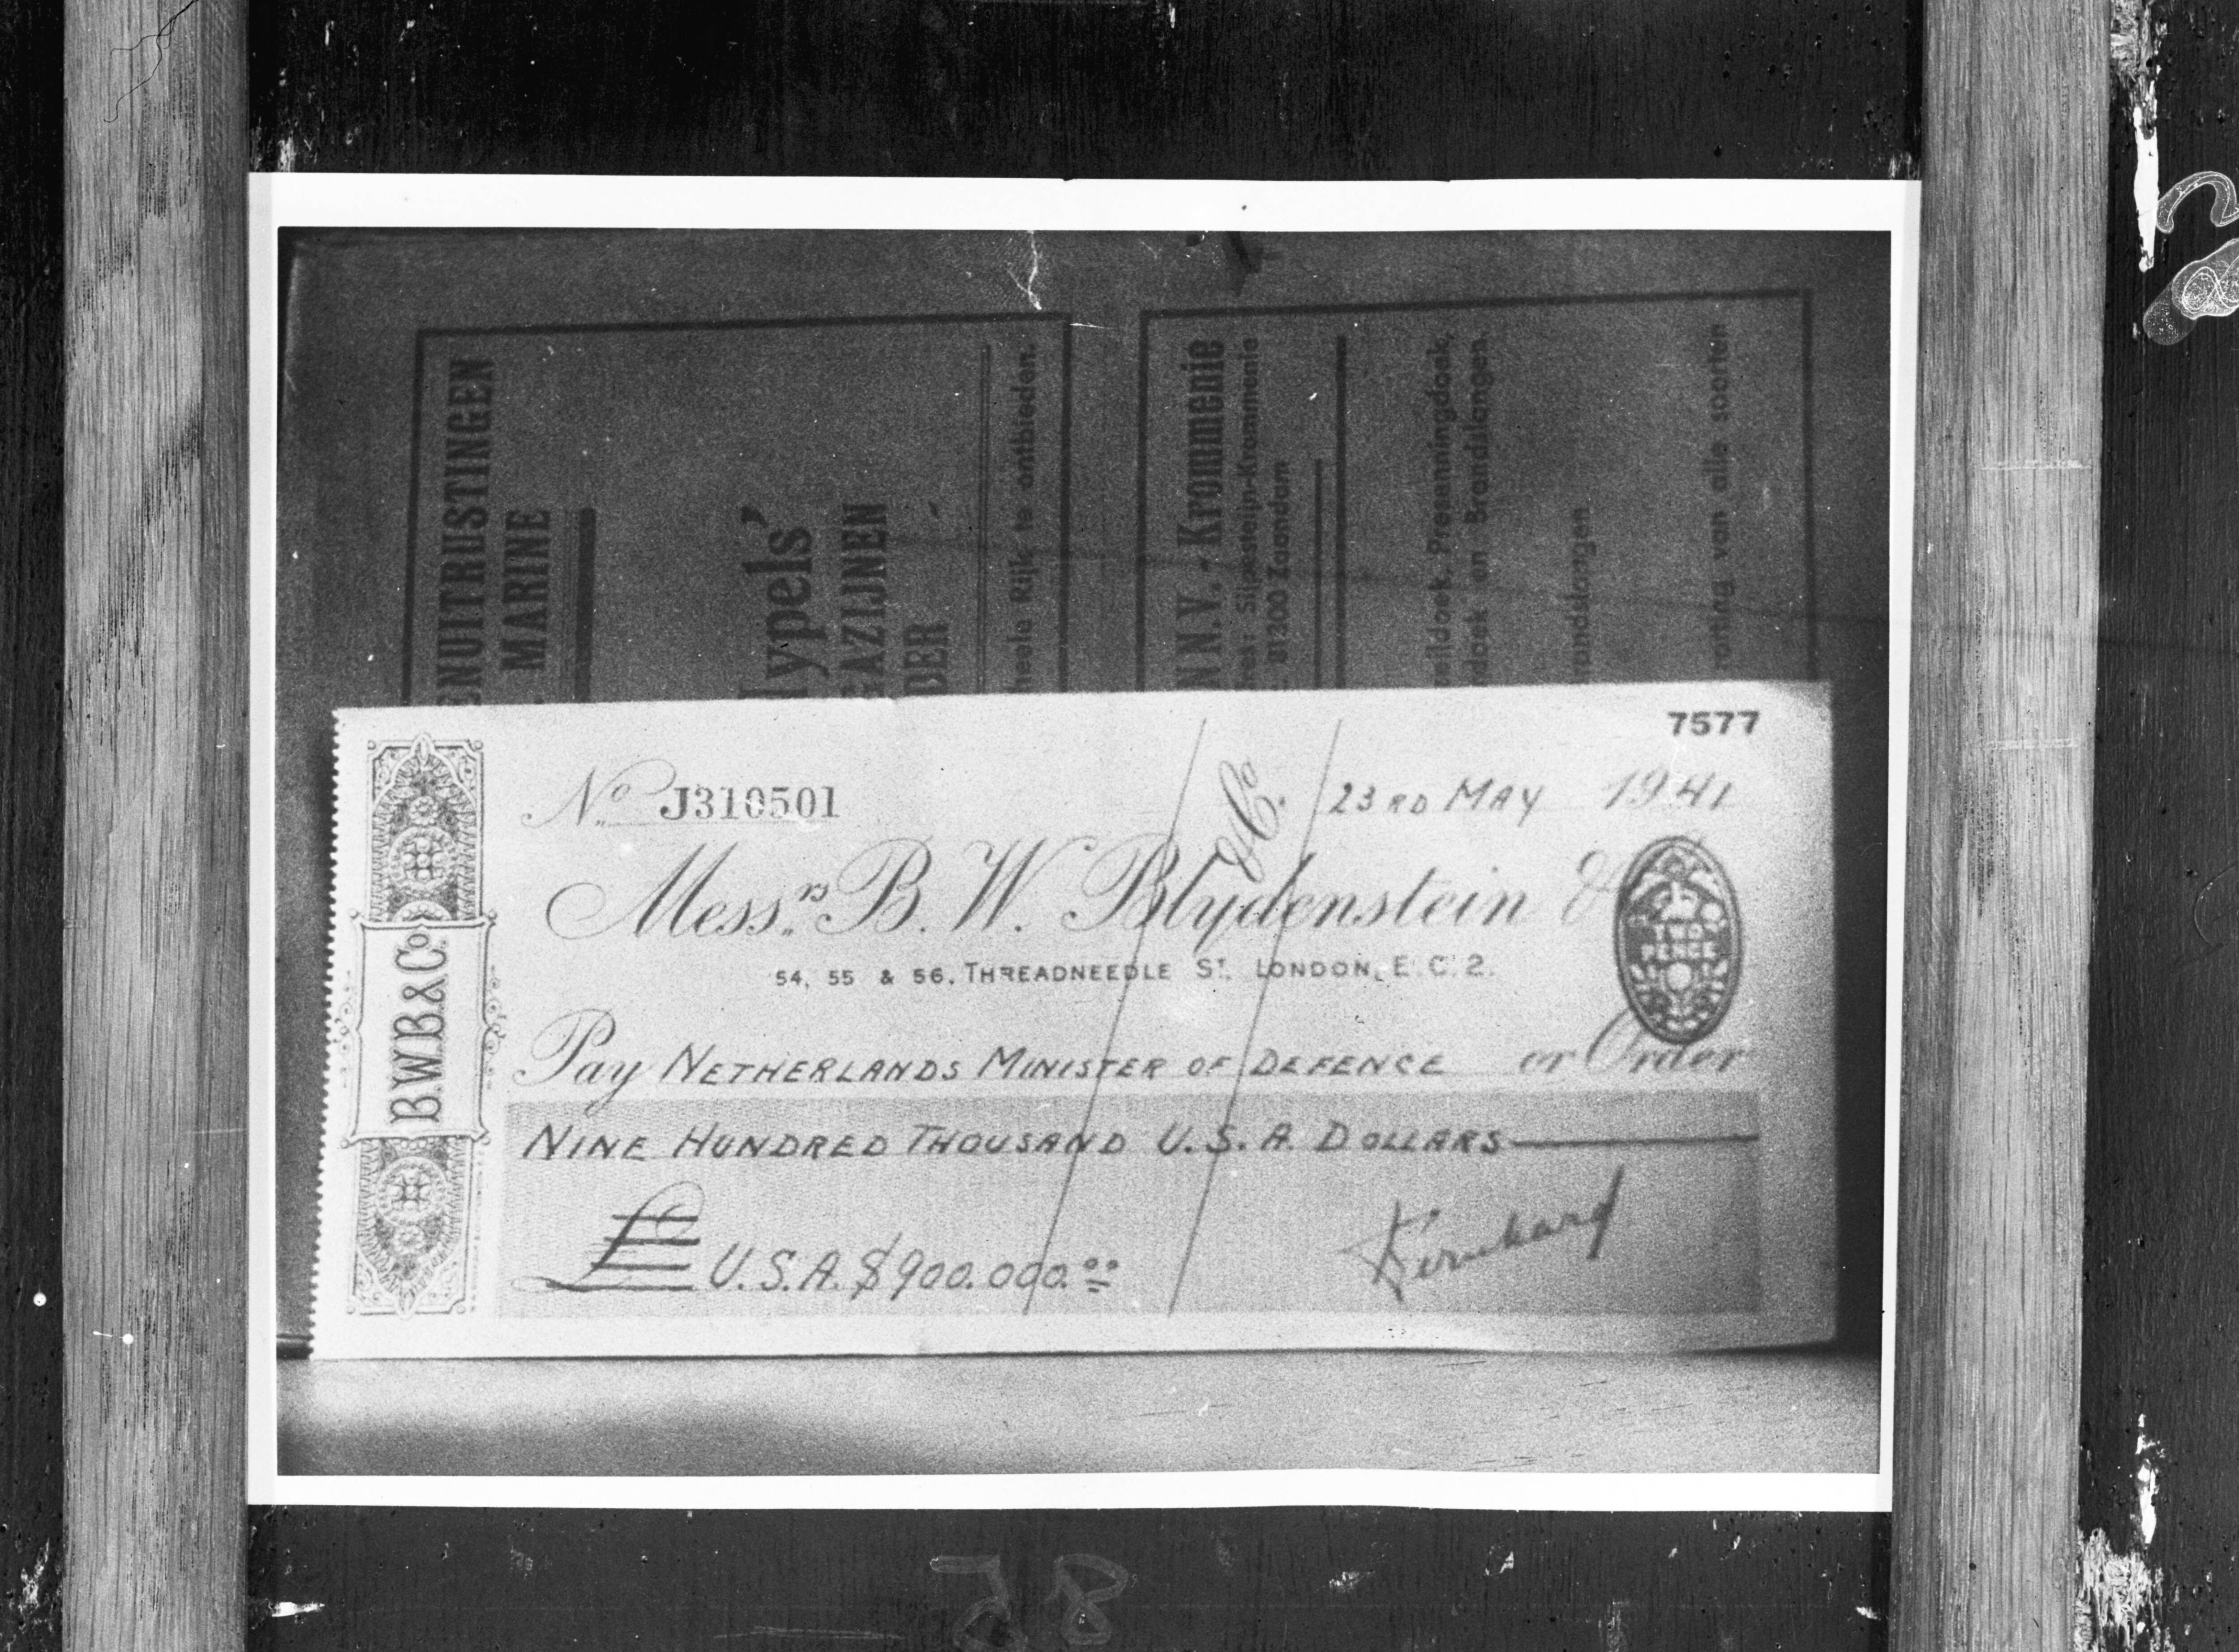 NUITRUSTINGEN
MARINE
ypels'
GAZIJNEN
DER
heele Rijk te ontbieden.
N.V. - Krommenie
Slijpesteijn-Krommenie
81200 Zaandam
Presenningdoek,
en Brandslangen
randslangen
van alle soorten
7577
No J310501
& Co.
23RD MAY 1941
Messrs B. W. Blydenstein &
54, 55 & 56, THREADNEEDLE ST. LONDON, E.C.2.
B.W.B.& Co.
Pay NETHERLANDS MINISTER OF DEFENCE or Order
NINE HUNDRED THOUSAND U.S.A. DOLLARS
£ U.S.A. $900.000.00
Bernhard